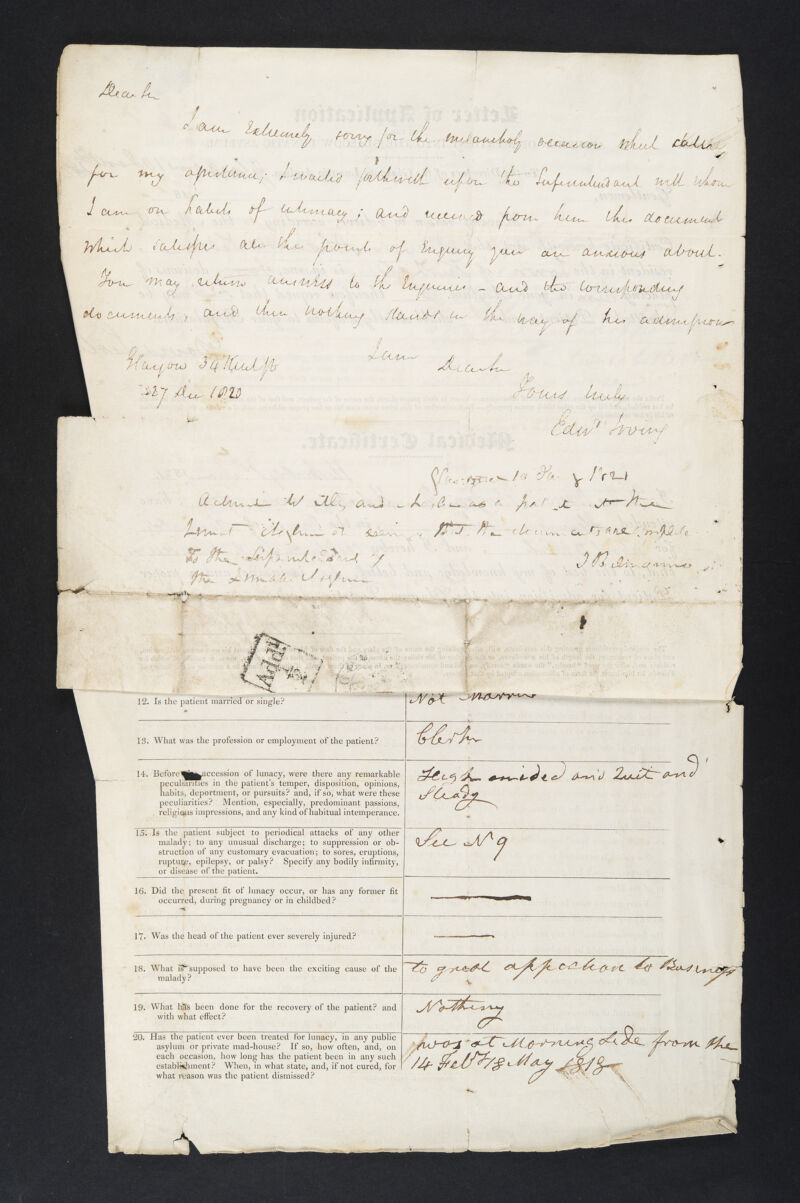 Dear Sir
I am Extremely sorry for the melancholy occasion which calls
for my assistance; I waited forthwith upon the Superintendant with whom
I am on habits of intimacy; and received from him this document
which satisfies all the points of Enquiry you are anxious about.
You may return answers to the Enquiries - and the corresponding
documents, and then nothing stands in the way of his admission
I am Dear Sir
Glasgow 34 Kent St
27 Dec 1820
Yours truly
Edwd Irving
Glasgow 10 1821
and as a patient the
Lunatic Asylum the documents are complete
To the Superintendant of
the Lunatic Asylum
Letter of Application
Medical Certificate.
Addl
½
12. Is the patient married or single?
Not Married
13. What was the profession or employment of the patient?
Clerk
14. Before the accession of lunacy, were there any remarkable
peculiarities in the patient's temper, disposition, opinions,
habits, deportment, or pursuits? and, if so, what were these
peculiarities? Mention, especially, predominant passions,
religious impressions, and any kind of habitual intemperance.
High minded and Quit and
Steady
15. Is the patient subject to periodical attacks of any other
malady; to any unusual discharge; to suppression or ob-
struction of any customary evacuation; to sores, eruptions,
rupture, epilepsy, or palsy? Specify any bodily infirmity,
or disease of the patient.
See N 9
16. Did the present fit of lunacy occur, or has any former fit
occurred, during pregnancy or in childbed?
17. Was the head of the patient ever severely injured?
18. What is supposed to have been the exciting cause of the
malady?
to great appection to Business
19. What has been done for the recovery of the patient? and
with what effect?
Nothing
20. Has the patient ever been treated for lunacy, in any public
asylum or private mad-house? If so, how often, and, on
each occasion, how long has the patient been in any such
establishment? When, in what state, and, if not cured, for
what reason was the patient dismissed?
was at Morning Side from the
14 Feb 18 May 1818